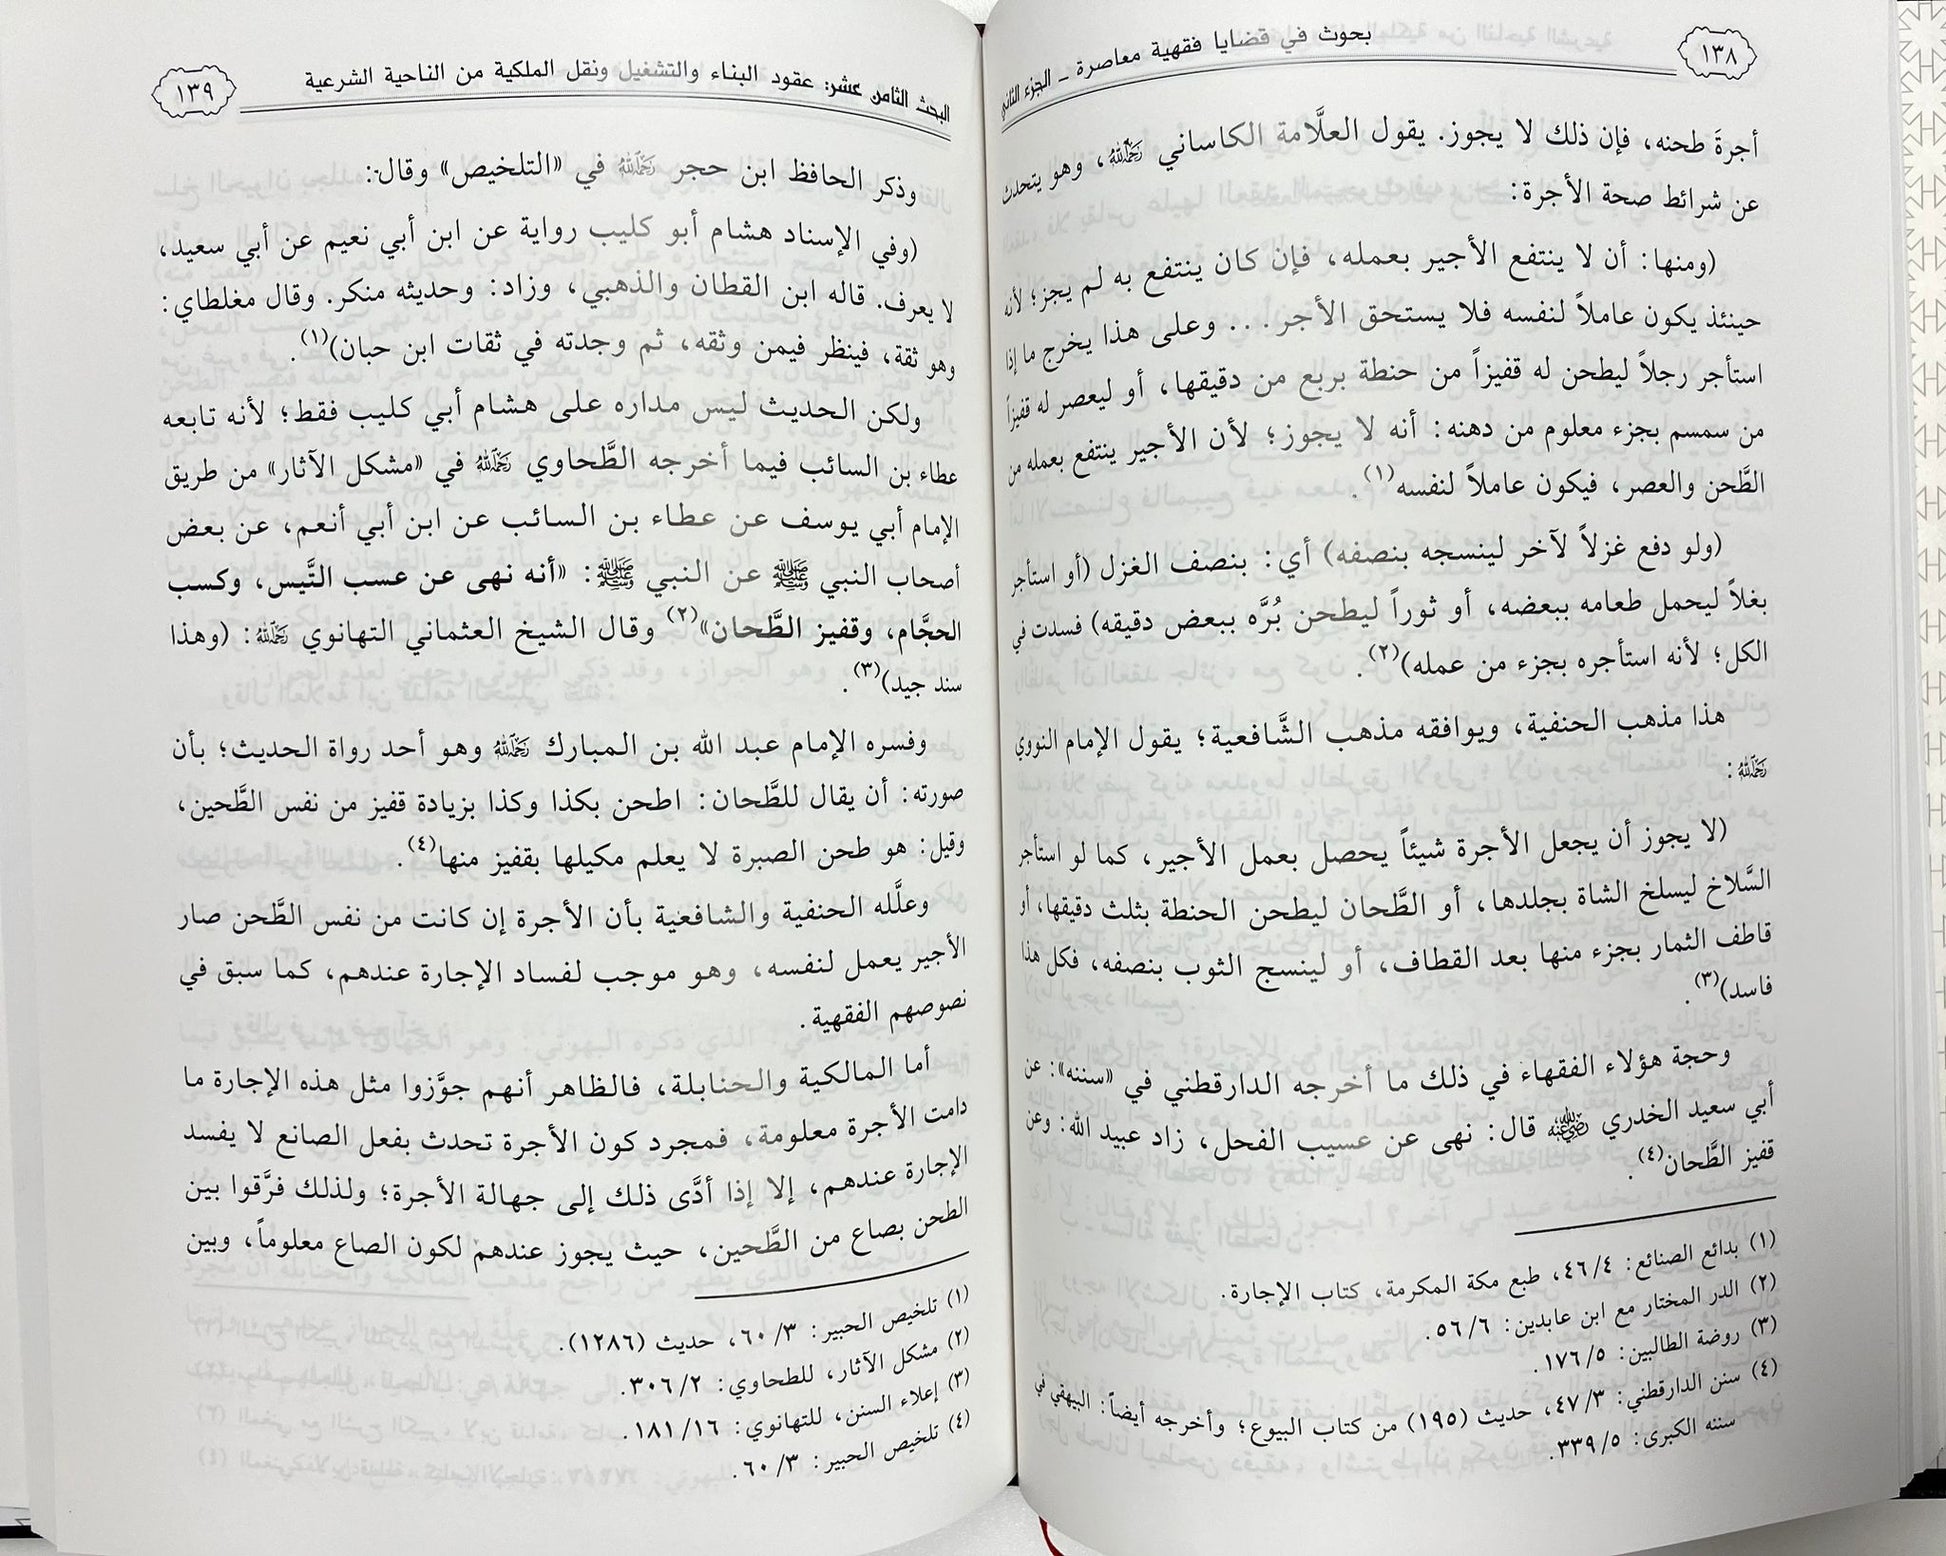 ١٣٨
بحوث في قضايا فقهية معاصرة - الجزء الثاني
أجرةَ طحنه، فإن ذلك لا يجوز. يقول العلَّامة الكاساني رَحِمَهُ اللهُ، وهو يتحدث
عن شرائط صحة الأجرة:
(ومنها: أن لا ينتفع الأجير بعمله، فإن كان ينتفع به لم يجز؛ لأنه
حينئذ يكون عاملاً لنفسه فلا يستحق الأجر... وعلى هذا يخرج ما إذا
استأجر رجلاً ليطحن له قفيزاً من حنطة بربع من دقيقها، أو ليعصر له قفيزاً
من سمسم بجزء معلوم من دهنه: أنه لا يجوز؛ لأن الأجير ينتفع بعمله من
الطَّحن والعصر، فيكون عاملاً لنفسه(١).
(ولو دفع غزلاً لآخر لينسجه بنصفه) أي: بنصف الغزل (أو استأجر
بغلاً ليحمل طعامه ببعضه، أو ثوراً ليطحن بُرَّه ببعض دقيقه) فسدت في
الكل؛ لأنه استأجره بجزء من عمله)(٢).
هذا مذهب الحنفية، ويوافقه مذهب الشَّافعية؛ يقول الإمام النووي
رَحِمَهُ اللهُ:
(لا يجوز أن يجعل الأجرة شيئاً يحصل بعمل الأجير، كما لو استأجر
السَّلاخ ليسلخ الشاة بجلدها، أو الطَّحان ليطحن الحنطة بثلث دقيقها، أو
قاطف الثمار بجزء منها بعد القطاف، أو لينسج الثوب بنصفه، فكل هذا
فاسد)(٣).
وحجة هؤلاء الفقهاء في ذلك ما أخرجه الدارقطني في «سننه»: عن
أبي سعيد الخدري رَضِيَ اللهُ عَنْهُ قال: نهى عن عسيب الفحل، زاد عبيد الله: وعن
قفيز الطَّحان(٤).
(١) بدائع الصنائع: ٤/٤٦، طبع مكة المكرمة، كتاب الإجارة.
(٢) الدر المختار مع ابن عابدين: ٦/٥٦.
(٣) روضة الطالبين: ٥/١٧٦.
(٤) سنن الدارقطني: ٣/٤٧، حديث (١٩٥) من كتاب البيوع؛ وأخرجه أيضاً: البيهقي في
سننه الكبرى: ٥/٣٣٩.
البحث الثامن عشر: عقود البناء والتشغيل ونقل الملكية من الناحية الشرعية
١٣٩
وذكر الحافظ ابن حجر رَحِمَهُ اللهُ في «التلخيص» وقال:
(وفي الإسناد هشام أبو كليب رواية عن ابن أبي نعيم عن أبي سعيد،
لا يعرف. قاله ابن القطان والذهبي، وزاد: وحديثه منكر. وقال مغلطاي:
وهو ثقة، فينظر فيمن وثقه، ثم وجدته في ثقات ابن حبان)(١).
ولكن الحديث ليس مداره على هشام أبي كليب فقط؛ لأنه تابعه
عطاء بن السائب فيما أخرجه الطَّحاوي رَحِمَهُ اللهُ في «مشكل الآثار» من طريق
الإمام أبي يوسف عن عطاء بن السائب عن ابن أبي أنعم، عن بعض
أصحاب النبي ﷺ عن النبي ﷺ: «أنه نهى عن عسب التَّيس، وكسب
الحجَّام، وقفيز الطَّحان»(٢) وقال الشيخ العثماني التهانوي رَحِمَهُ اللهُ: (وهذا
سند جيد)(٣).
وفسره الإمام عبد الله بن المبارك رَحِمَهُ اللهُ وهو أحد رواة الحديث؛ بأن
صورته: أن يقال للطَّحان: اطحن بكذا وكذا بزيادة قفيز من نفس الطَّحين،
وقيل: هو طحن الصبرة لا يعلم مكيلها بقفيز منها(٤).
وعلَّله الحنفية والشافعية بأن الأجرة إن كانت من نفس الطَّحن صار
الأجير يعمل لنفسه، وهو موجب لفساد الإجارة عندهم، كما سبق في
نصوصهم الفقهية.
أما المالكية والحنابلة، فالظاهر أنهم جوَّزوا مثل هذه الإجارة ما
دامت الأجرة معلومة، فمجرد كون الأجرة تحدث بفعل الصانع لا يفسد
الإجارة عندهم، إلا إذا أدَّى ذلك إلى جهالة الأجرة؛ ولذلك فرَّقوا بين
الطحن بصاع من الطَّحين، حيث يجوز عندهم لكون الصاع معلوماً، وبين
(١) تلخيص الحبير: ٣/٦٠، حديث (١٢٨٦).
(٢) مشكل الآثار، للطحاوي: ٢/٣٠٦.
(٣) إعلاء السنن، للتهانوي: ١٦/١٨١.
(٤) تلخيص الحبير: ٣/٦٠.